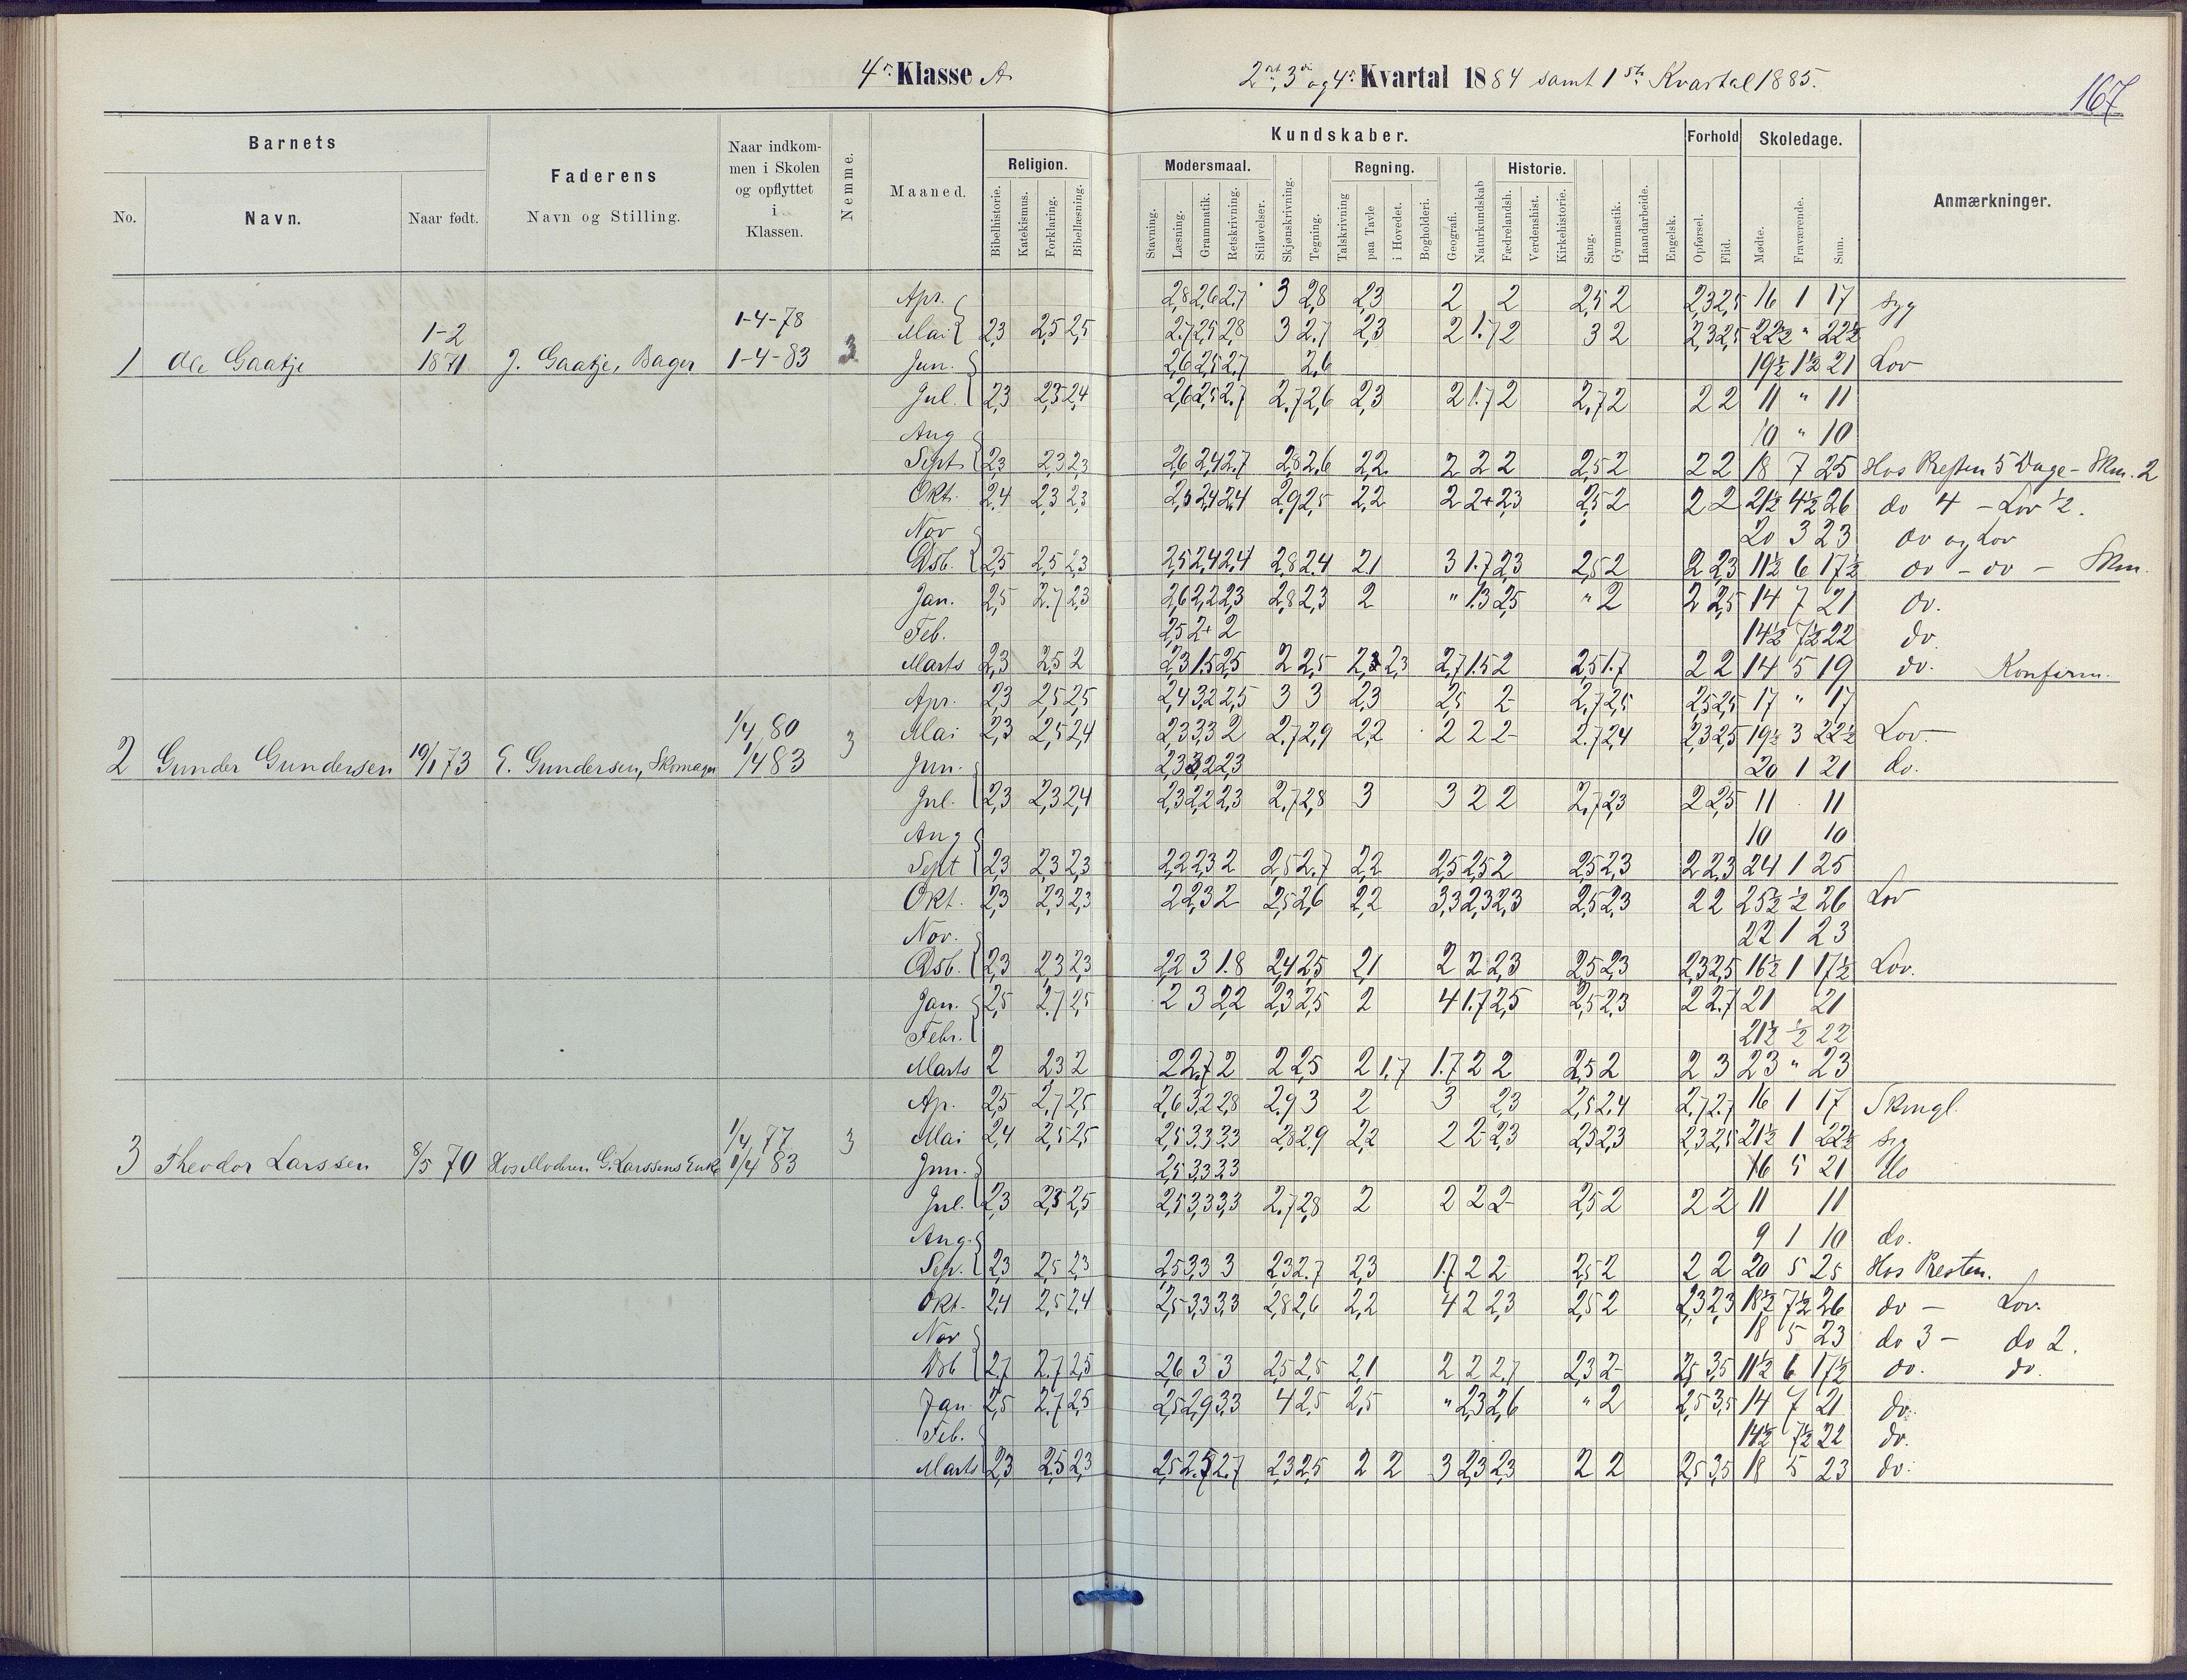 4de Klasse A.
2det, 3die og 4de Kvartal 1884 samt 1ste Kvartal 1885.
167
Barnets
No.
Navn.
Naar født.
Faderens
Navn og Stilling.
Naar indkom-
men i Skolen
og opflyttet
i
Klassen.
Nemme.
Maaned.
Kundskaber.
Religion.
Bibelhistorie.
Katekismus.
Forklaring.
Bibellæsning.
Modersmaal.
Stavning.
Læsning.
Grammatik.
Retskrivning.
Stiløvelser.
Skjønskrivning.
Tegning.
Regning.
Talskrivning
paa Tavle
i Hovedet.
Bogholderi.
Geografi.
Naturkundskab
Historie.
Fædrelandsh.
Verdenshist.
Kirkehistorie.
Sang.
Gymnastik.
Haandarbeide.
Engelsk.
Forhold
Opførsel.
Flid.
Skoledage.
Mødte.
Fraværende.
Sum.
Anmærkninger.
Apr. 2,8 2,6 2,7 3 2,8 2,3 2 2 2,5 2 2,3 2,5 16 1 17 Syg
1-4-78
Mai 2,3 2,5 2,5 2,7 2,5 2,8 3 2,7 2,3 2 1.7 2 3 2 2,3 2,5 22½ " 22½
1 Ole Gaatje 1-2 1871 J. Gaatje, Bager 1-4-83 3 Jun. 2,6 2,5 2,7 2,6 19½ 1½ 21 Lov
Jul. 2,3 2,3 2,4 2,6 2,5 2.7 2.7 2,6 2,3 2 1.7 2 2,7 2 2 2 11 " 11
Aug 10 " 10
Sept 2,3 2,3 2,3 2,6 2,4 2.7 2,8 2,6 2,2 2 2 2 2,5 2 2 2 18 7 25 Hos Presten 5 Dage - Skm. 2
Okt. 2,4 2,3 2,3 2,3 2,4 2,4 2,9 2,5 2,2 2 2+ 2,3 2,5 2 2 2 21½ 4½ 26 do 4 - Lov ½.
Nov 20 3 23 do og Lov
Dsb. 2,5 2,5 2,3 2,5 2,4 2,4 2,8 2.4 2.1 3 1.7 2,3 2,5 2 2 2,3 11½ 6 17½ do - do - Skm.
Jan. 2,5 2.7 2,3 2,6 2,2 2,3 2,8 2,3 2 " 1.3 2,5 " 2 2 2,5 14 7 21 do.
Feb. 2,5 2+ 2 14½ 7½ 22 do
Marts 2,3 2,5 2 2,3 1.5 2,5 2 2,5 2,3 2,3 2,7 1.5 2 2,5 1.7 2 2 14 5 19 do. Konfirm.
Apr. 2,3 2,5 2,5 2,4 3,2 2,5 3 3 2,3 2,5 2- 2,7 2,5 2,5 2,5 17 " 17
1/4 80
Mai 2,3 2,5 2,4 2,3 3,3 2 2.7 2,9 2,2 2 2 2- 2.7 2,4 2,3 2,5 19½ 3 22½ Lov.
2 Gunder Gundersen 19/1 73 E. Gundersen, Skomager 1/4 83 3 Jun. 2,3 3,2 2,3 20 1 21 do.
Jul. 2,3 2,3 2,4 2,3 2,2 2,3 2.7 2,8 3 3 2 2 2,7 2,3 2 2,5 11 11
Aug 10 10
Sept 2,3 2,3 2,3 2,2 2,3 2 2,5 2.7 2,2 2,5 2,5 2 2,5 2,3 2 2,3 24 1 25
Okt. 2,3 2,3 2,3 2 2,3 2 2,5 2,6 2,2 3,3 2,3 2,3 2,5 2,3 2 2 25½ ½ 26 Lov
Nov. 22 1 23
Dsb. 2,3 2,3 2,3 2,2 3 1.8 2,4 2,5 2,1 2 2 2,3 2,5 2,3 2,3 2,5 16½ 1 17½ Lov.
Jan. 2,5 2.7 2,5 2 3 2,2 2,3 2,5 2 4 1.7 2,5 2,5 2,3 2 2.7 21 21
Febr. 21½ ½ 22
Marts 2 2,3 2 2 2.7 2 2 2,5 2 1,7 1.7 2 2 2,5 2 2 3 23 " 23
Ap. 2,5 2,7 2,5 2,6 3,2 2,8 2.9 3 2 3 2,3 2,5 2,4 2.7 2.7 16 1 17 Skmgl.
1/4 77
Mai 2,4 2,5 2,5 2,5 3,3 3,3 2,8 2,9 2,2 2 2- 2,3 2,5 2,3 2,3 2,5 21½ 1 22½ Syg
3 Theodor Larssen 8/5 70 Hos Moderen G. Larssens Enke 1/4 83 3 Jun. 2,5 3,3 3,3 16 5 21 do
Jul. 2,3 2,3 2,5 2,5 3,3 3,3 2.7 2,8 2 2 2 2- 2,5 2 2 2 11 11
Aug. 9 1 10 do.
Sep. 2,3 2,5 2,3 2,5 3,3 3 2,3 2.7 2,3 1.7 2 2- 2,5 2 2 2 20 5 25 Hos Presten.
Okt. 2,4 2,5 2,4 2,5 3,3 3,3 2,8 2,6 2,2 4 2 2,3 2,5 2 2,3 2,3 18½ 7½ 26 do - Lov.
Nov 18 5 23 do 3 - do 2.
Dsb 2,7 2.7 2,5 2,6 3 3 2,5 2,5 2,1 2 2 2,7 2,3 2- 2,5 3,5 11½ 6 17½ do. do.
Jan. 2,5 2.7 2,5 2,5 2,9 3,3 4 2,5 2,5 " 2,3 2,6 " 2 2,5 3,5 14 7 21 do.
Feb. 14½ 7½ 22 do.
Marts 2,3 2,5 2,3 2,5 2.7 2.7 2,3 2,5 2 2 3 2,3 2,3 2 2 2,5 3,5 18 5 23 do.